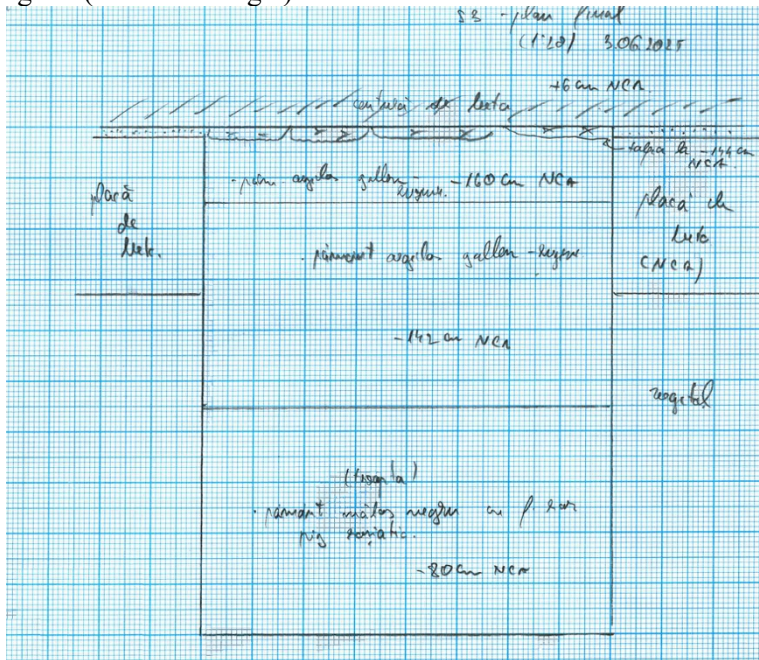 S3 - plan final
(1:20) 3.06.2025
+6 cm NCA
centură de beton
talpa la -144 cm
NCA.
- păm. argilos galben -
-160 cm NCA
placă
de
bet.
placă de
(NCA)
- pământ argilos galben -
-142 cm NCA
vegetal
(treapta)
- pământ mâlos negru cu f. rar
pig
-80 cm NCA